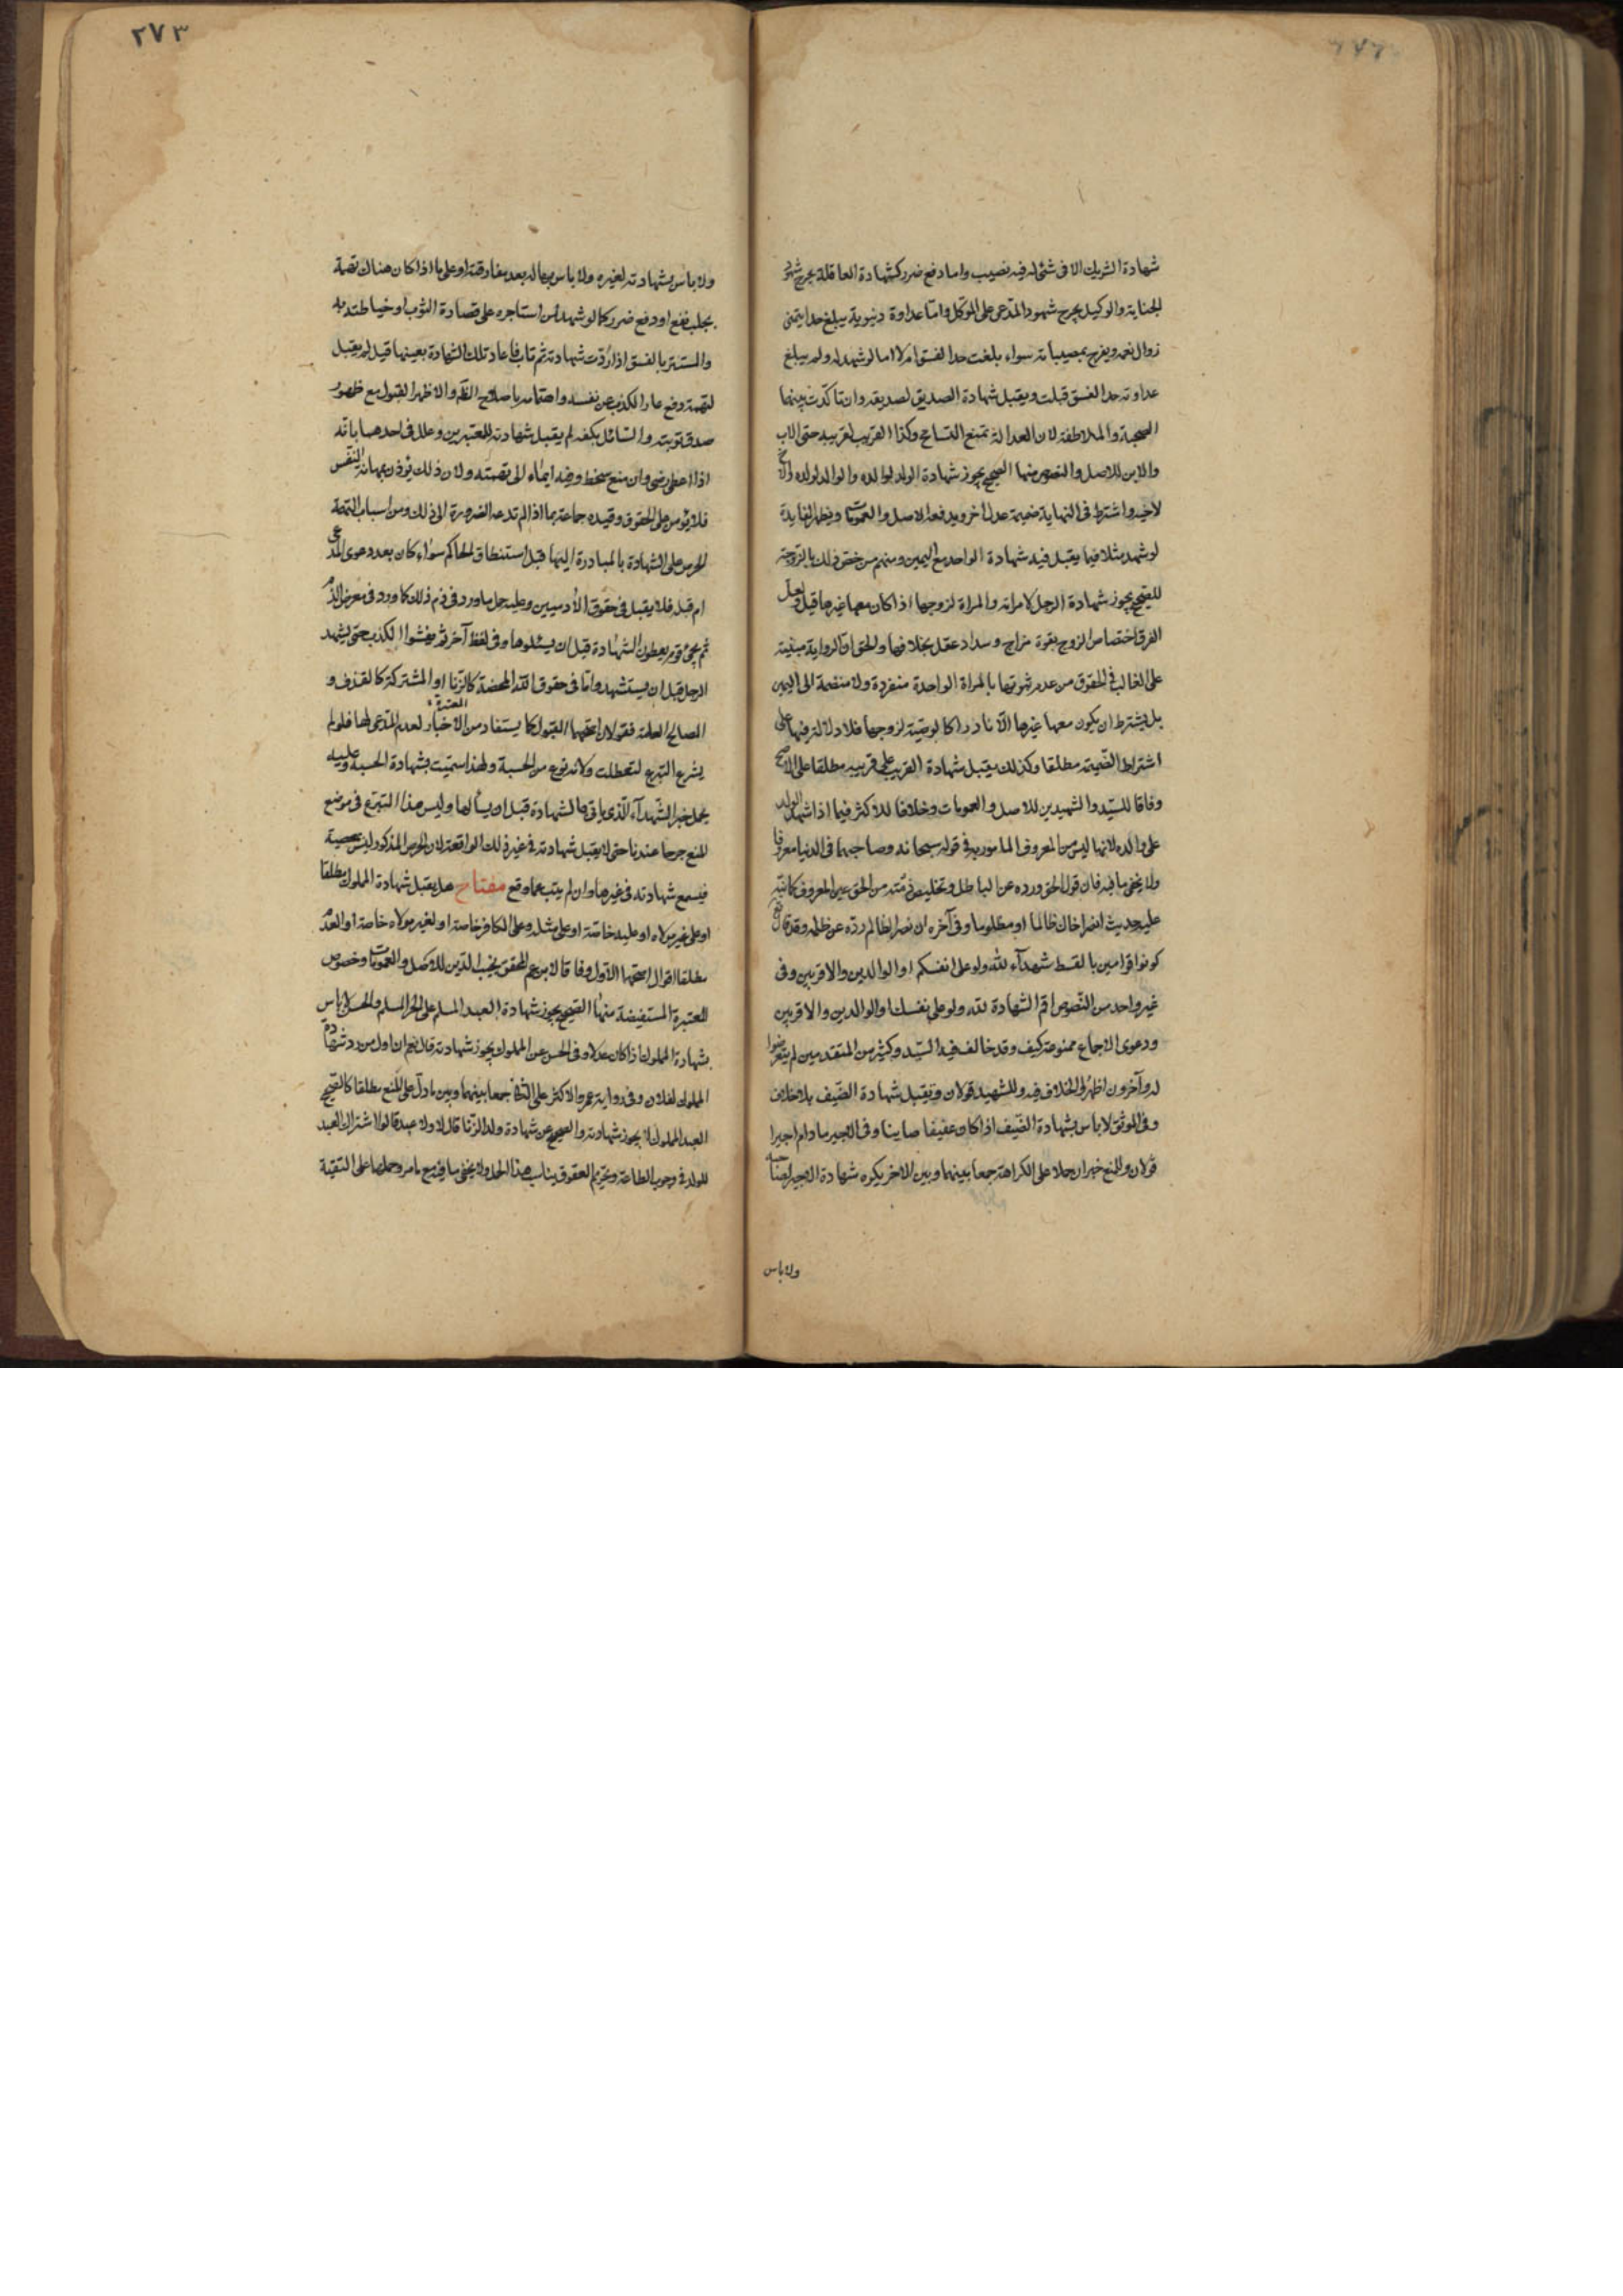 شهادة الشريك الا فى شئ له فيه نصيب واما دفع ضرر كشهادة العاقلة بجرح شهود
الجناية والوكيل بجرح شهود المدعى على الموكل واما عداوة دنيوية يبلغ حدا يتمنى
زوال نعمه ويفرح بمصيباته سواء بلغت حد الفسق ام لا اما لو شهد له ولم يبلغ
عداوته حد الفسق قبلت ويقبل شهادة الصديق لصديقه وان تاكدت بينهما
الصحبة والملاطفة لان العدالة تمنع التسامح وكذا القريب لقريبه حتى الاب
والابن للاصل والنصوص منها الصحيح يجوز شهادة الولد لوالده والوالد لولده والاخ
لاخيه واشترط فى النهاية ضميمة عدل اخر ويدفعه الاصل والعمومات ويظهر الفايدة
لو شهد مثلا فيما يقبل فيه شهادة الواحد مع اليمين ومنهم من خص ذلك بالزوجة
للصحيح يجوز شهادة الرجل لامراته والمراة لزوجها اذا كان معها غيرها قيل ولعل
الفرق اختصاص الزوج بقوة مزاج وسداد عقل بخلافها والحق ان الرواية مبنية
على الغالب فى الحقوق من عدم ثبوتها بالمراة الواحدة منفردة ولا منضمة الى اليمين
بل يشترط ان يكون معها غيرها الا نادرا كالوصية لزوجها فلا دلالة فيها على
اشتراط الضميمة مطلقا وكذلك يقبل شهادة القريب على قريبه مطلقا على الاصح
وفاقا للسيد والشهيدين للاصل والعمومات وخلافا للاكثر فيما اذا شهد الولد
على والده لانها ليس من المعروف المامور به فى قوله سبحانه وصاحبهما فى الدنيا معروفا
ولا يخفى ما فيه فان قول الحق ورده عن الباطل وتخليص ذمته من الحق عين المعروف كما نبه
عليه حديث انصر اخاك ظالما او مظلوما وفى آخره ان نصر الظالم رده عن ظلمه وقد قال تع
كونوا قوامين بالقسط شهدآء لله ولو على انفسكم او الوالدين والاقربين وفى
غير واحد من النصوص اقم الشهادة لله ولو على نفسك او الوالدين والاقربين
ودعوى الاجماع ممنوعة كيف وقد خالف فيه السيد وكثير من المتقدمين لم يتعرضوا
له وآخرون اظهروا الخلاف فيه وللشهيد قولان وتقبل شهادة الضيف بلا خلاف
وفى الموثق لا باس بشهادة الضيف اذا كان عفيفا صاينا وفى الاجير ما دام اجيرا
قولان وللمنع خبران حملا على الكراهة جمعا بينهما وبين الاخر يكره شهادة الاجير لصاحبه
ولا باس
ولا باس بشهادته لغيره ولا باس بها له بعد مفارقته او على ما اذا كان هناك تهمة
بجلب نفع او دفع ضرر كما لو شهد لمن استاجره على قصارة الثوب او خياطته به
والمستتر بالفسق اذا ردت شهادته ثم تاب فاعاد تلك الشهادة بعينها قيل لم يقبل
لتهمة دفع عار الكذب عن نفسه واهتمامه باصلاح الظ والاظهر القبول مع ظهور
صدق توبته والسائل بكفه لم يقبل شهادته للمعتبرين وعلل فى احدهما بانه
اذا اعطى رضى وان منع سخط وفيه ايماء الى تهمته ولان ذلك يؤذن بمهانة النفس
فلا يؤمن على الحقوق وقيده جماعة بما اذا لم تدعه الضرورة الى ذلك ومن اسباب التهمة
الحرص على الشهادة بالمبادرة اليها قبل استنطاق الحاكم سواء كان بعد دعوى المدعى
ام قبله فلا يقبل فى حقوق الآدميين وعليه حمل ما ورد فى ذم ذلك كما ورد فى معرض الذم
ثم يجئ قوم يعطون الشهادة قبل ان يسئلوها وفى لفظ آخر ثم يفشوا الكذب حتى يشهد
الرجل قبل ان يستشهد واما فى حقوق الله المحضة كالزنا او المشتركة كالقذف و
المصالح العامة فقولان اصحهما القبول كما يستفاد من الاخبار المعتبرة لعدم المدعى لها فلو لم
يشرع التبرع لتعطلت ولانه نوع من الحسبة ولهذا سميت بشهادة الحسبة وعليه
يحمل خبر الشهدآء الذى ياتى بالشهادة قبل ان يسألها وليس هذا التبرع فى موضع
المنع جرحا عندنا حتى لا يقبل شهادته فى غير ذلك الواقعة لان الحرص المذكور ليس معصية
فيسمع شهادته فى غيرها وان لم يتب عما وقع مفتاح هل يقبل شهادة المملوك مطلقا
او على غير مولاه او عليه خاصة او على مثله وعلى الكافر خاصة او لغير مولاه خاصة او العدم
مطلقا اقوال اصحها الاول وفاقا لابن عم المحقق نجيب الدين للاصل والعمومات وخصوص
المعتبرة المستفيضة منها الصحيح يجوز شهادة العبد المسلم على الحر المسلم والحسن لا باس
بشهادة المملوك اذا كان عدلا وفى الحسن عن المملوك يجوز شهادته قال نعم ان اول من رد شهادة
المملوك لفلان وفى رواية عمر والاكثر على الثانى جمعا بينهما وبين ما دل على المنع مطلقا كالصحيح
العبد المملوك لا يجوز شهادته والصحيح عن شهادة ولد الزنا قال لا ولا عبد قالوا اشتراك العبد
للولد فى وجوب الطاعة وتحريم العقوق يناسب هذا الحمل ولا يخفى ما فيه مع ما مر وحملها على التقية
٢٧٣